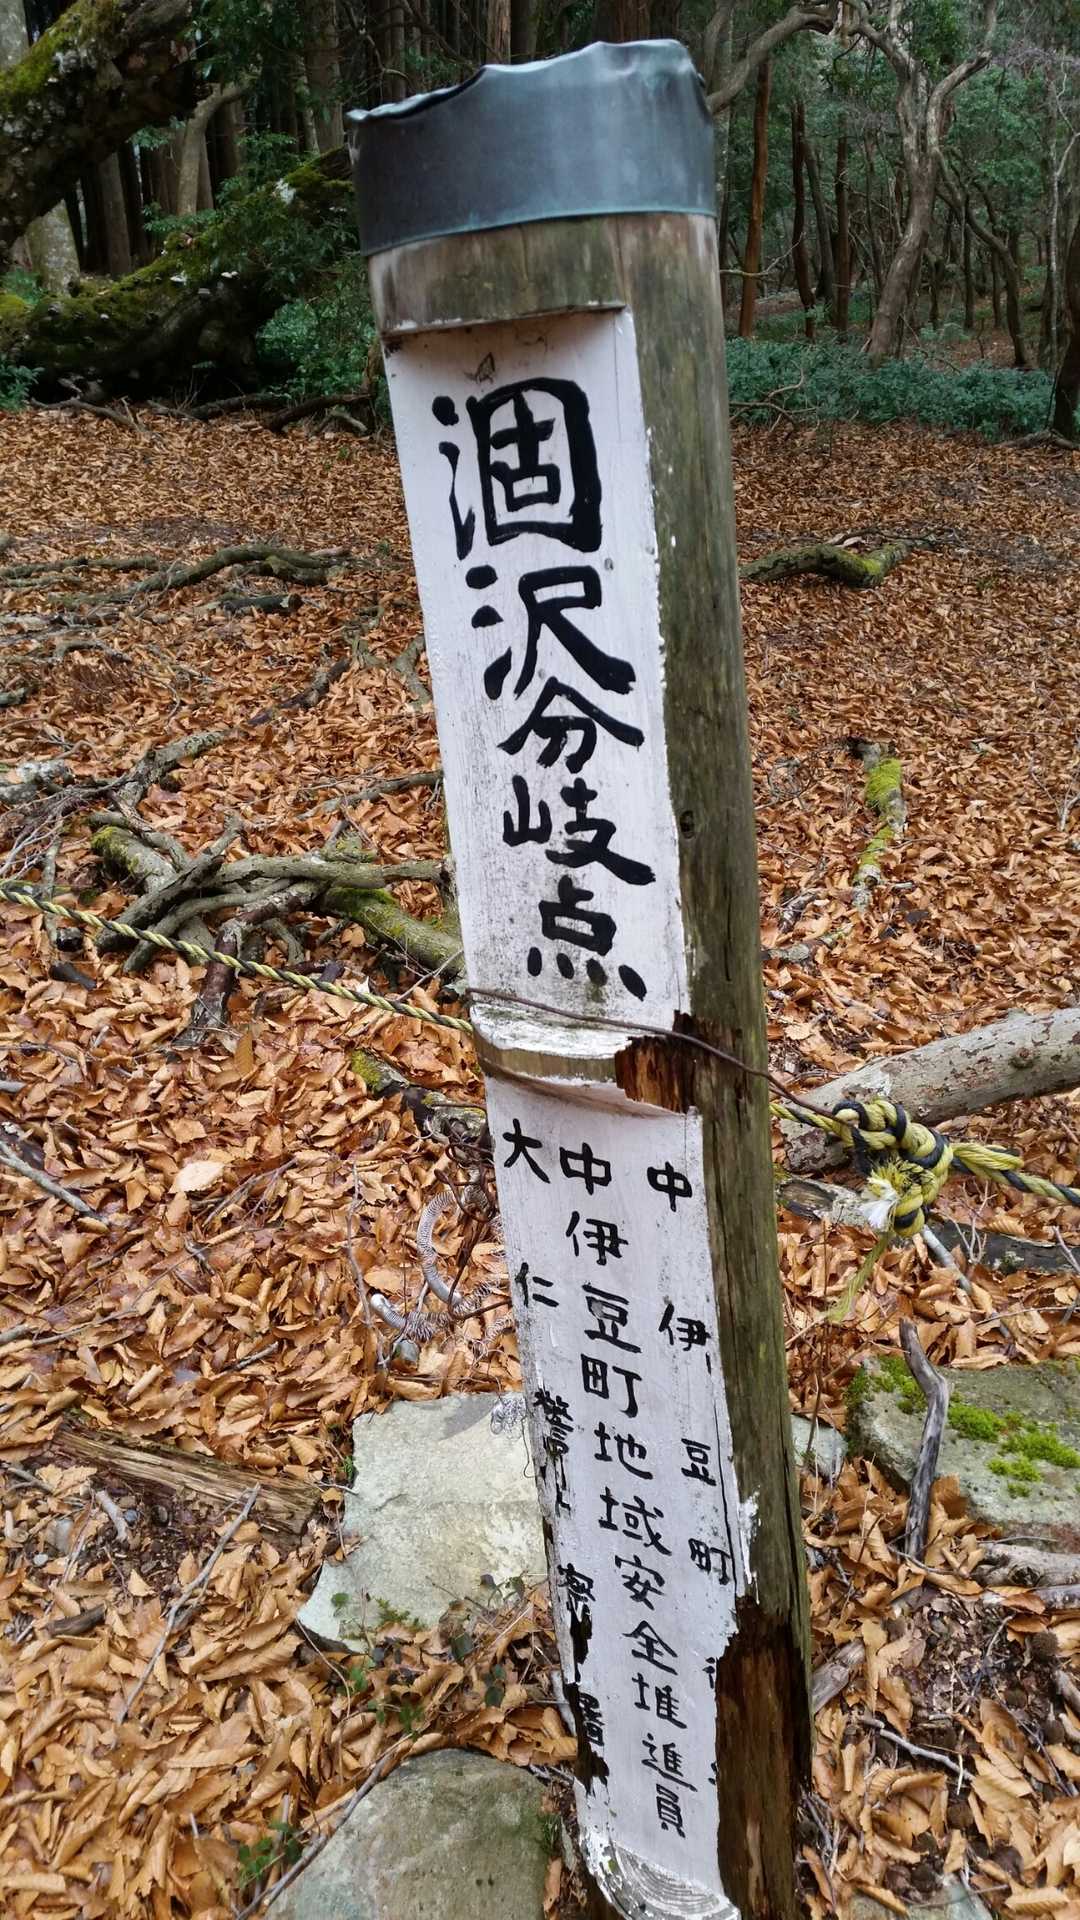 涸沢分岐点
中伊豆町
中伊豆町地域安全堆進員
大仁警察署